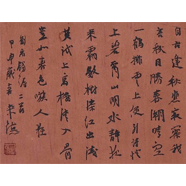 自古逢秋悲寂寥我
言秋日勝春朝晴空
一鶴排雲上便引詩情
到碧霄山明水净夜
来霜數樹深紅出淺
黄試上高樓清入骨
豈如春色嗾人狂
劉禹錫詩二首